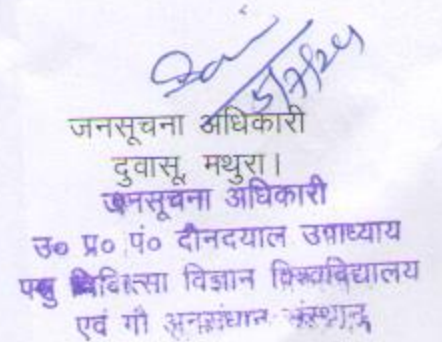 5/7/24
जनसूचना अधिकारी
दुवासू, मथुरा।
जनसूचना अधिकारी
उ० प्र० पं० दीनदयाल उपाध्याय
पशु चिकित्सा विज्ञान विश्वविद्यालय
एवं गौ अनुसंधान संस्थान